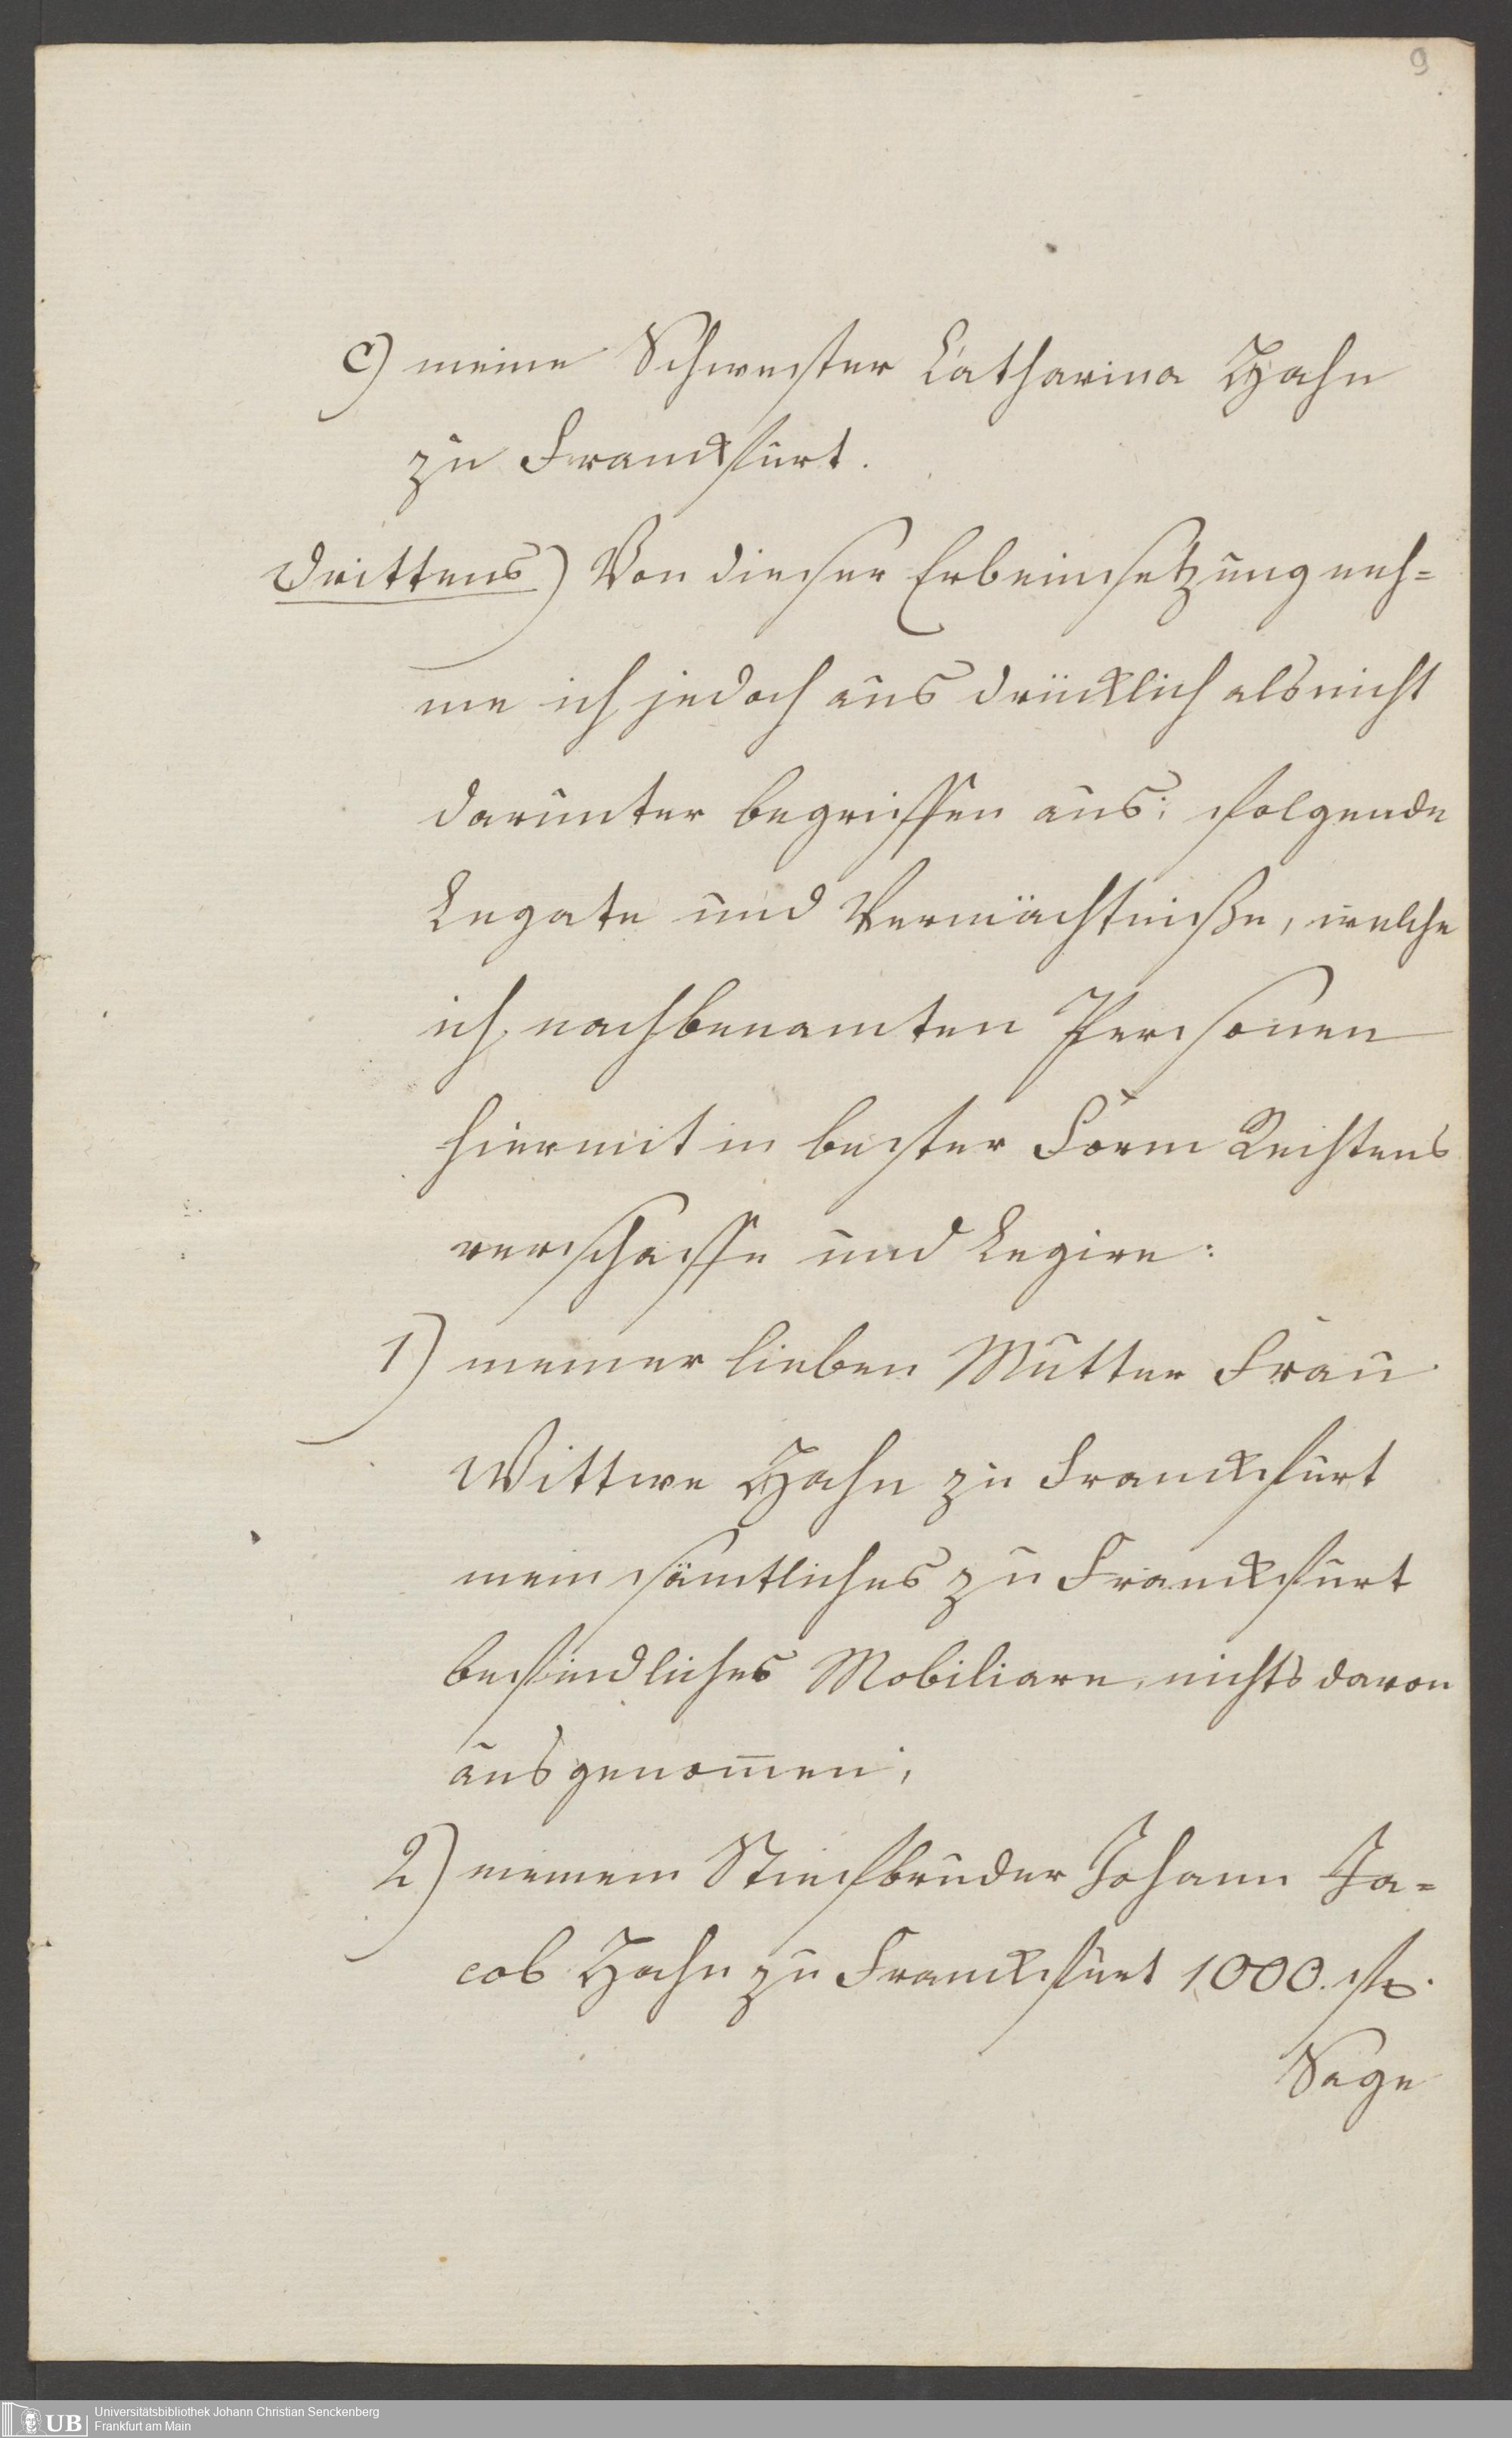 9
c) meine Schwester Catharina Hahn
zu Franckfurt.
Drittens) Von dieser Erbeinsetzung neh=
me ich jedoch ausdrücklich als nicht
darunter begriffen aus: folgende
Legate und Vermächtniße, welche
ich nachbenamten Personen
hiermit in bester Form Rechtens
verschaffe und Legire:
1) meiner lieben Mutter Frau
Wittwe Hahn zu Franckfurt
mein sämtliches zu Franckfurt
befindliches Mobiliare, nichts davon
ausgenom̄en;
2) meinem Stiefbruder Johann Ja=
cob Hahn zu Franckfurt 1000. fl.
Sage
UB
Universitätsbibliothek Johann Christian Senckenberg
Frankfurt am Main